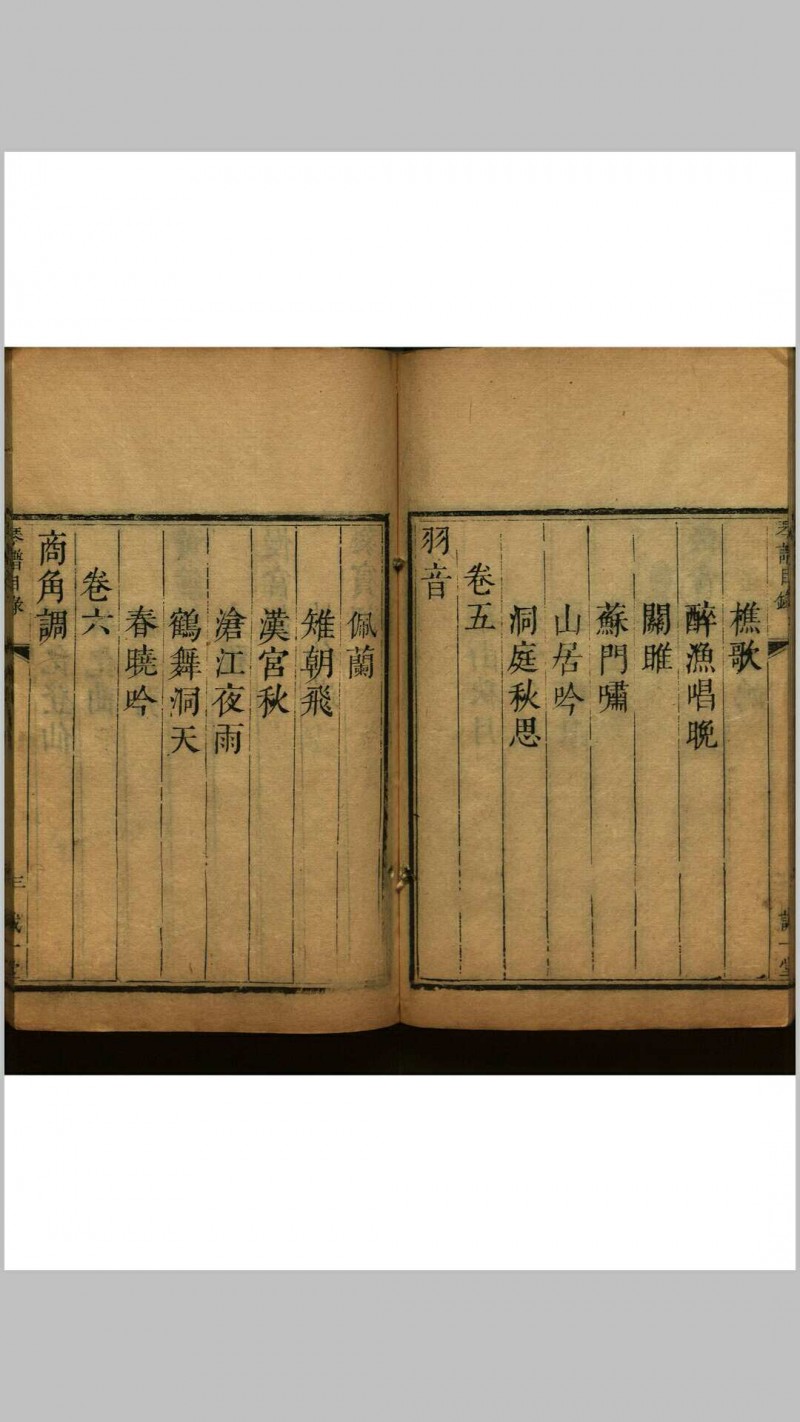 琴譜目錄
誠一堂
樵歌
醉漁唱晚
關雎
蘇門嘯
山居吟
洞庭秋思
卷五
羽音
佩蘭
雉朝飛
漢宮秋
滄江夜雨
鶴舞洞天
春曉吟
卷六
商角調
琴譜目錄
三
誠一堂